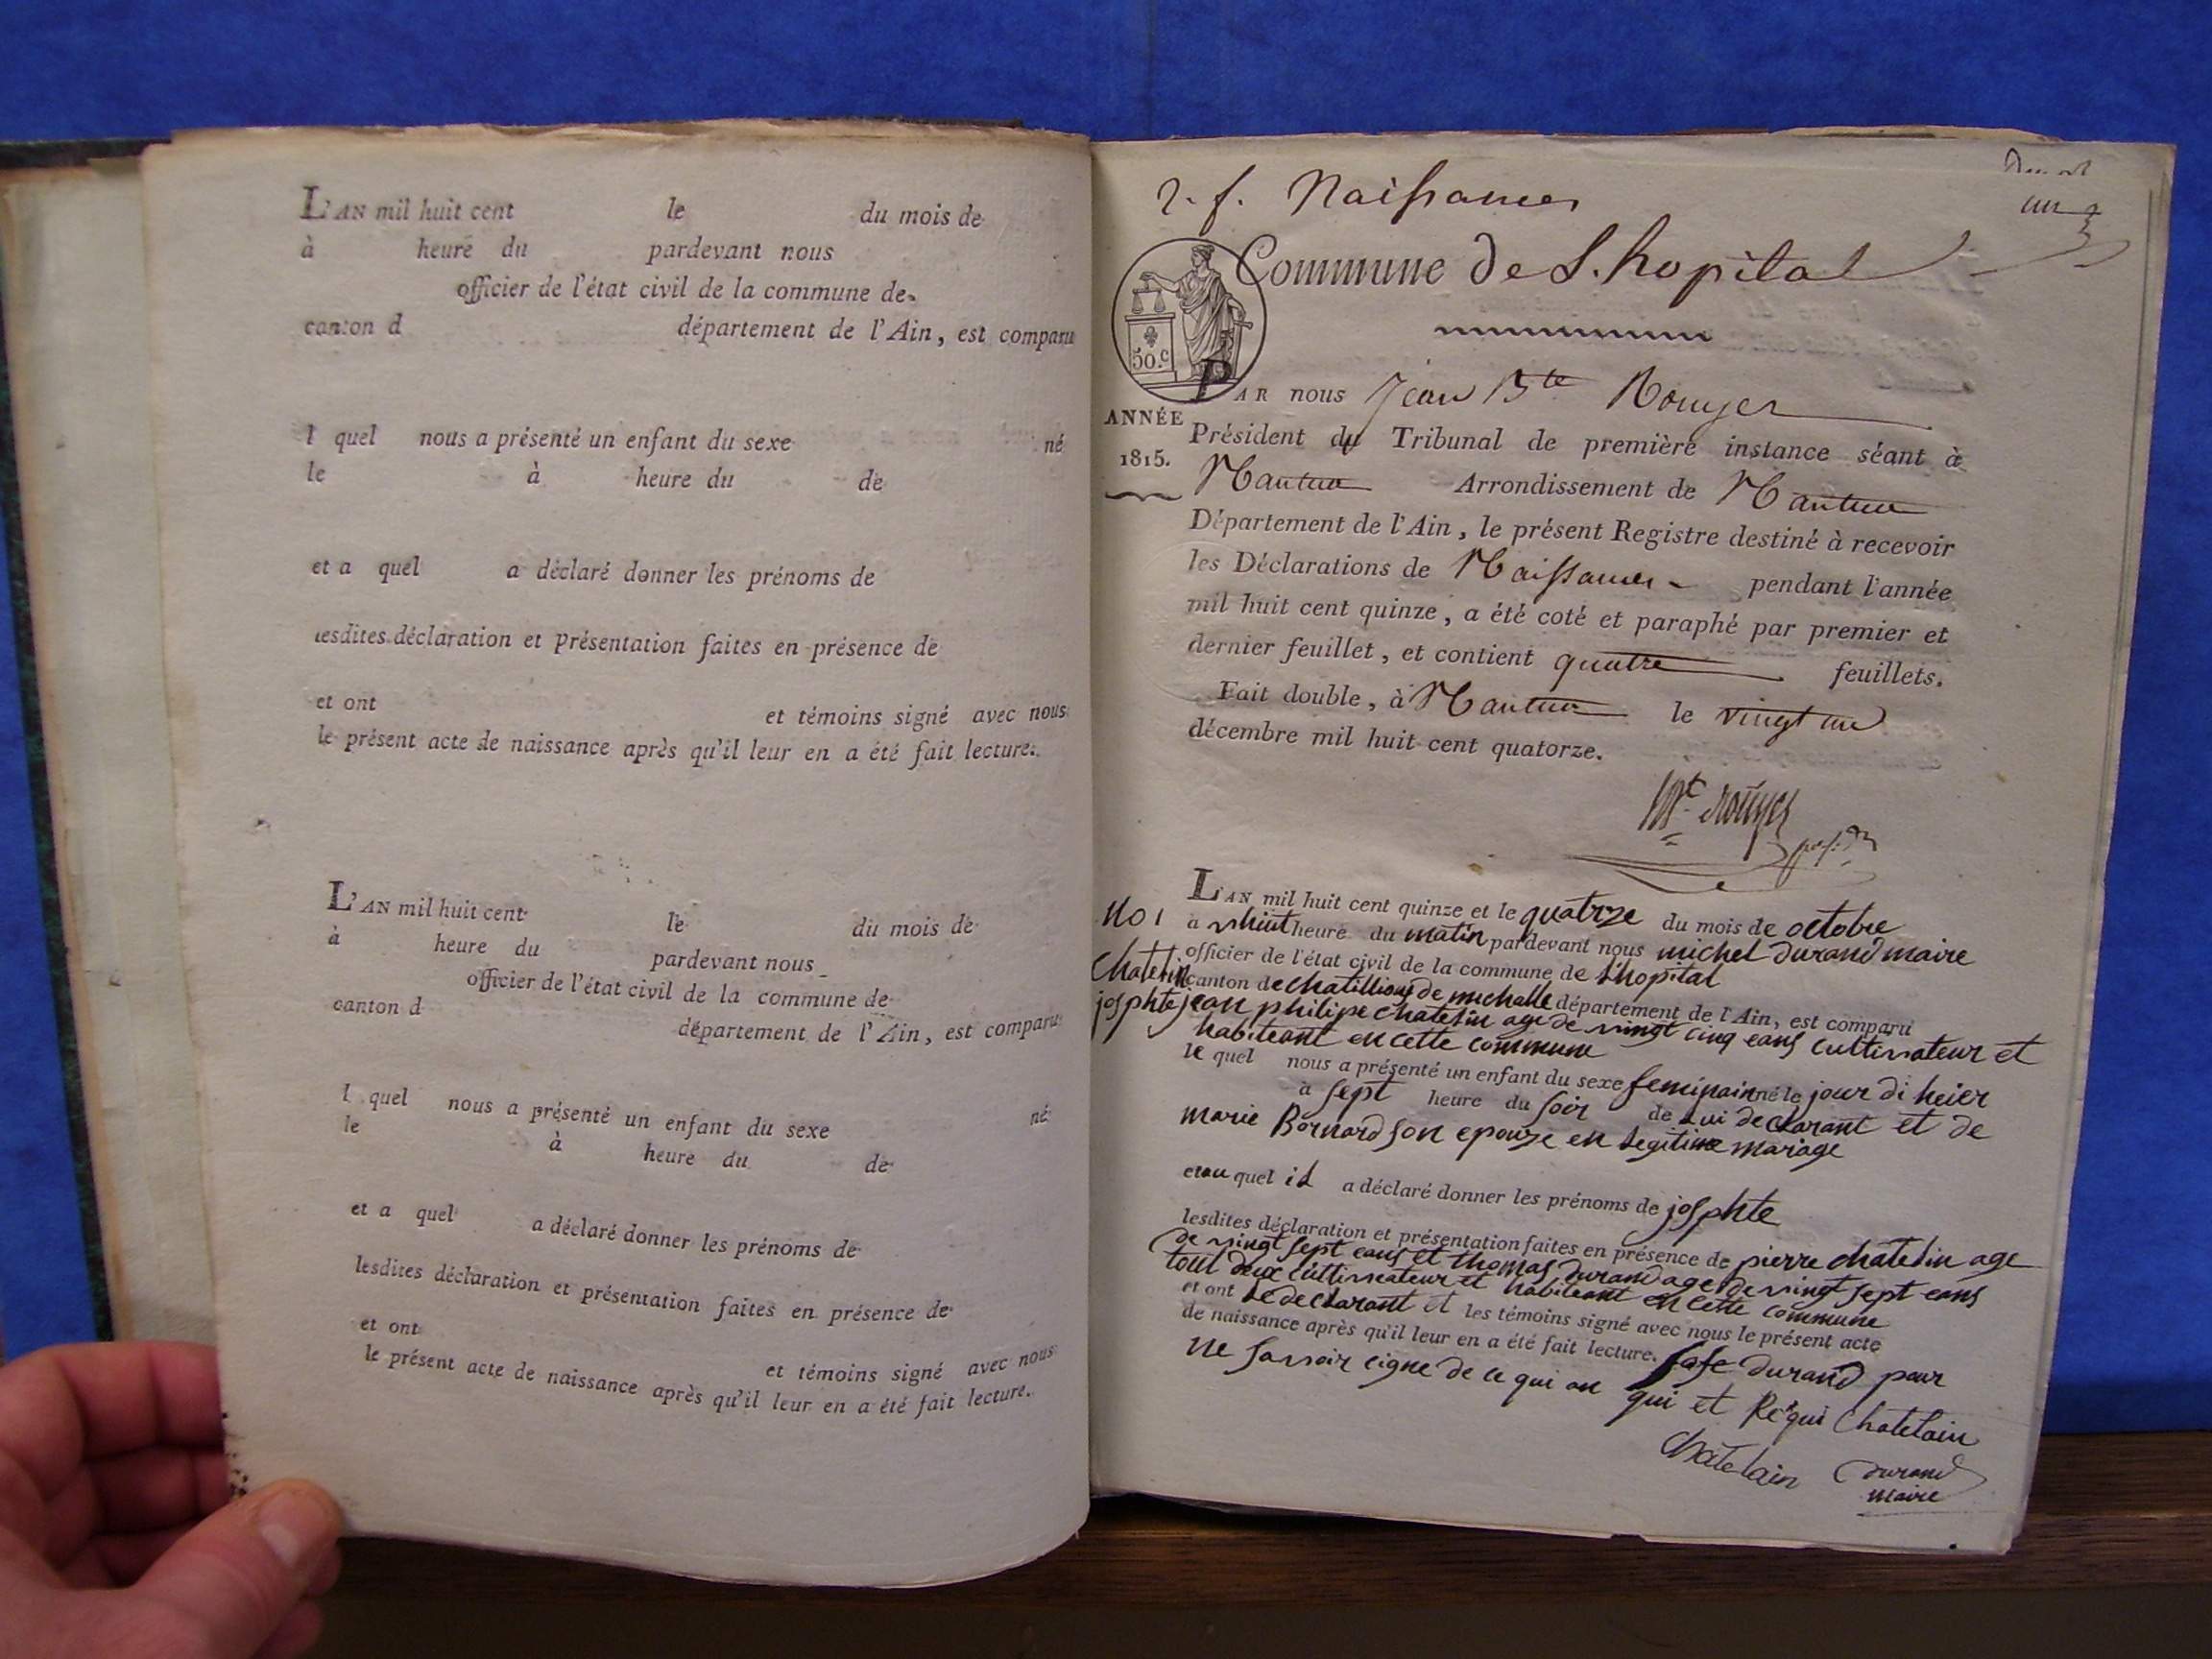 L'AN mil huit cent le du mois de
à heure du pardevant nous
officier de l'état civil de la commune de
canton d département de l'Ain, est comparu
l quel nous a présenté un enfant du sexe né
le à heure du de
et a quel a déclaré donner les prénoms de
lesdites déclaration et présentation faites en présence de
et ont et témoins signé avec nous
le présent acte de naissance après qu'il leur en a été fait lecture.
L'AN mil huit cent le du mois de
à heure du pardevant nous
officier de l'état civil de la commune de
canton d département de l'Ain, est comparu
l quel nous a présenté un enfant du sexe né
le à heure du de
et a quel a déclaré donner les prénoms de
lesdites déclaration et présentation faites en présence de
et ont et témoins signé avec nous
le présent acte de naissance après qu'il leur en a été fait lecture.
2. f. Naissances
un
Commune de L.hopital
50.c
PAR nous Jean Bte Rouyer
ANNÉE
1815.
Président du Tribunal de première instance séant à
Nantua Arrondissement de Nantua
Département de l'Ain, le présent Registre destiné à recevoir
les Déclarations de Naissances pendant l'année
mil huit cent quinze, a été coté et paraphé par premier et
dernier feuillet, et contient quatre feuillets.
Fait double, à Nantua le vingt un
décembre mil huit cent quatorze.
Bte rouyer
L'AN mil huit cent quinze et le quatrze du mois de octobre
No 1
à vhuit heure du matin pardevant nous michel durand maire
officier de l'état civil de la commune de Lhopital
Chatelin
josphte
canton de chatillions de michalle département de l'Ain, est comparu
jean philipe chatelin age de vingt cinq eans cultivateur et
habiteant en cette commune
le quel nous a présenté un enfant du sexe feminain né le jour di heier
à sept heure du soir de Lui declarant et de
marie Bornard son epouze en Legitime mariage
et au quel il a déclaré donner les prénoms de josphte
lesdites déclaration et présentation faites en présence de pierre chatelin age
de vingt sept eans et thomas durand age de vingt sept eans
tout deux cultiveateur et habiteant en cette commune
et ont Le declarant et les témoins signé avec nous le présent acte
de naissance après qu'il leur en a été fait lecture. durand pour
ne savoir cigne de ce qui an qui et Requi Chatelain
Chatelain durand
maire